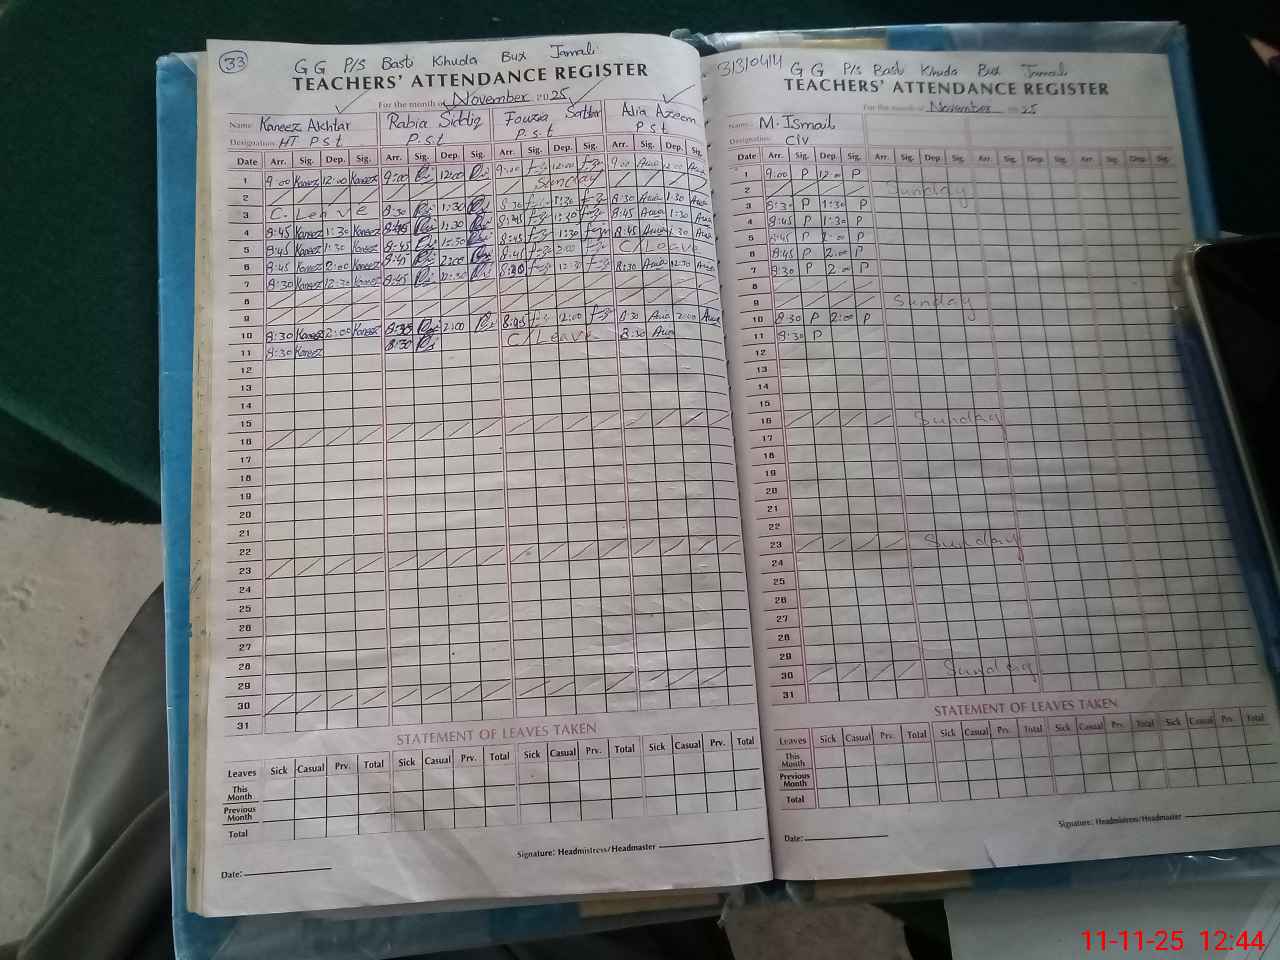 33
G G P/S Basti Khuda Bux Jamali
TEACHERS' ATTENDANCE REGISTER
For the month of November 2025
Name: Kaneez Akhtar Rabia Siddiq Fouzia Sattar Alia Azeem
Designation: HT P s t P.s.t P.s.t P s t
Date Arr. Sig. Dep. Sig. Arr. Sig. Dep. Sig. Arr. Sig. Dep. Sig. Arr. Sig. Dep. Sig.
1 9:00 Kaneez 12:00 Kaneez 9:00 12:00 9:00 12:00 9:00 12:00
2 Sunday
3 C. Leave 8:30 1:30 8:30 1:30 8:30 1:30
4 8:45 Kaneez 1:30 Kaneez 8:45 1:30 8:45 1:30 8:45 1:30
5 8:45 Kaneez 1:30 Kaneez 8:45 8:45 1:30 8:45 1:30
6 8:45 Kaneez 2:00 Kaneez 8:45 2:00 8:45 2:00 C/Leave
7 8:30 Kaneez 12:30 Kaneez 8:45 12:30 8:30 12:30 8:30 12:30
8
9
10 8:30 Kaneez 2:00 Kaneez 8:35 2:00 8:45 2:00 8:30 2:00
11 8:30 Kaneez 8:30 C/Leave 8:30
12
13
14
15
16
17
18
19
20
21
22
23
24
25
26
27
28
29
30
31
STATEMENT OF LEAVES TAKEN
Leaves Sick Casual Prv. Total Sick Casual Prv. Total Sick Casual Prv. Total Sick Casual Prv. Total
This Month
Previous Month
Total
Signature: Headmistress/Headmaster
Date:
31310414 G G P/S Basti Khuda Bux Jamali
TEACHERS' ATTENDANCE REGISTER
For the month of November 2025
Name: M. Ismail
Designation: C/V
Date Arr. Sig. Dep. Sig. Arr. Sig. Dep. Sig. Arr. Sig. Dep. Sig. Arr. Sig. Dep. Sig.
1 9:00 P 12:00 P
2 Sunday
3 8:30 P 1:30 P
4 8:45 P 1:30 P
5 8:45 P P
6 8:45 P 2:00 P
7 8:30 P P
8
9 Sunday
10 8:30 P 2:00 P
11 8:30 P
12
13
14
15
16 Sunday
17
18
19
20
21
22
23 Sunday
24
25
26
27
28
29
30 Sunday
31
STATEMENT OF LEAVES TAKEN
Leaves Sick Casual Prv. Total Sick Casual Prv. Total Sick Casual Prv. Total Sick Casual Prv. Total
This Month
Previous Month
Total
Signature: Headmistress/Headmaster
Date:
11-11-25 12:44